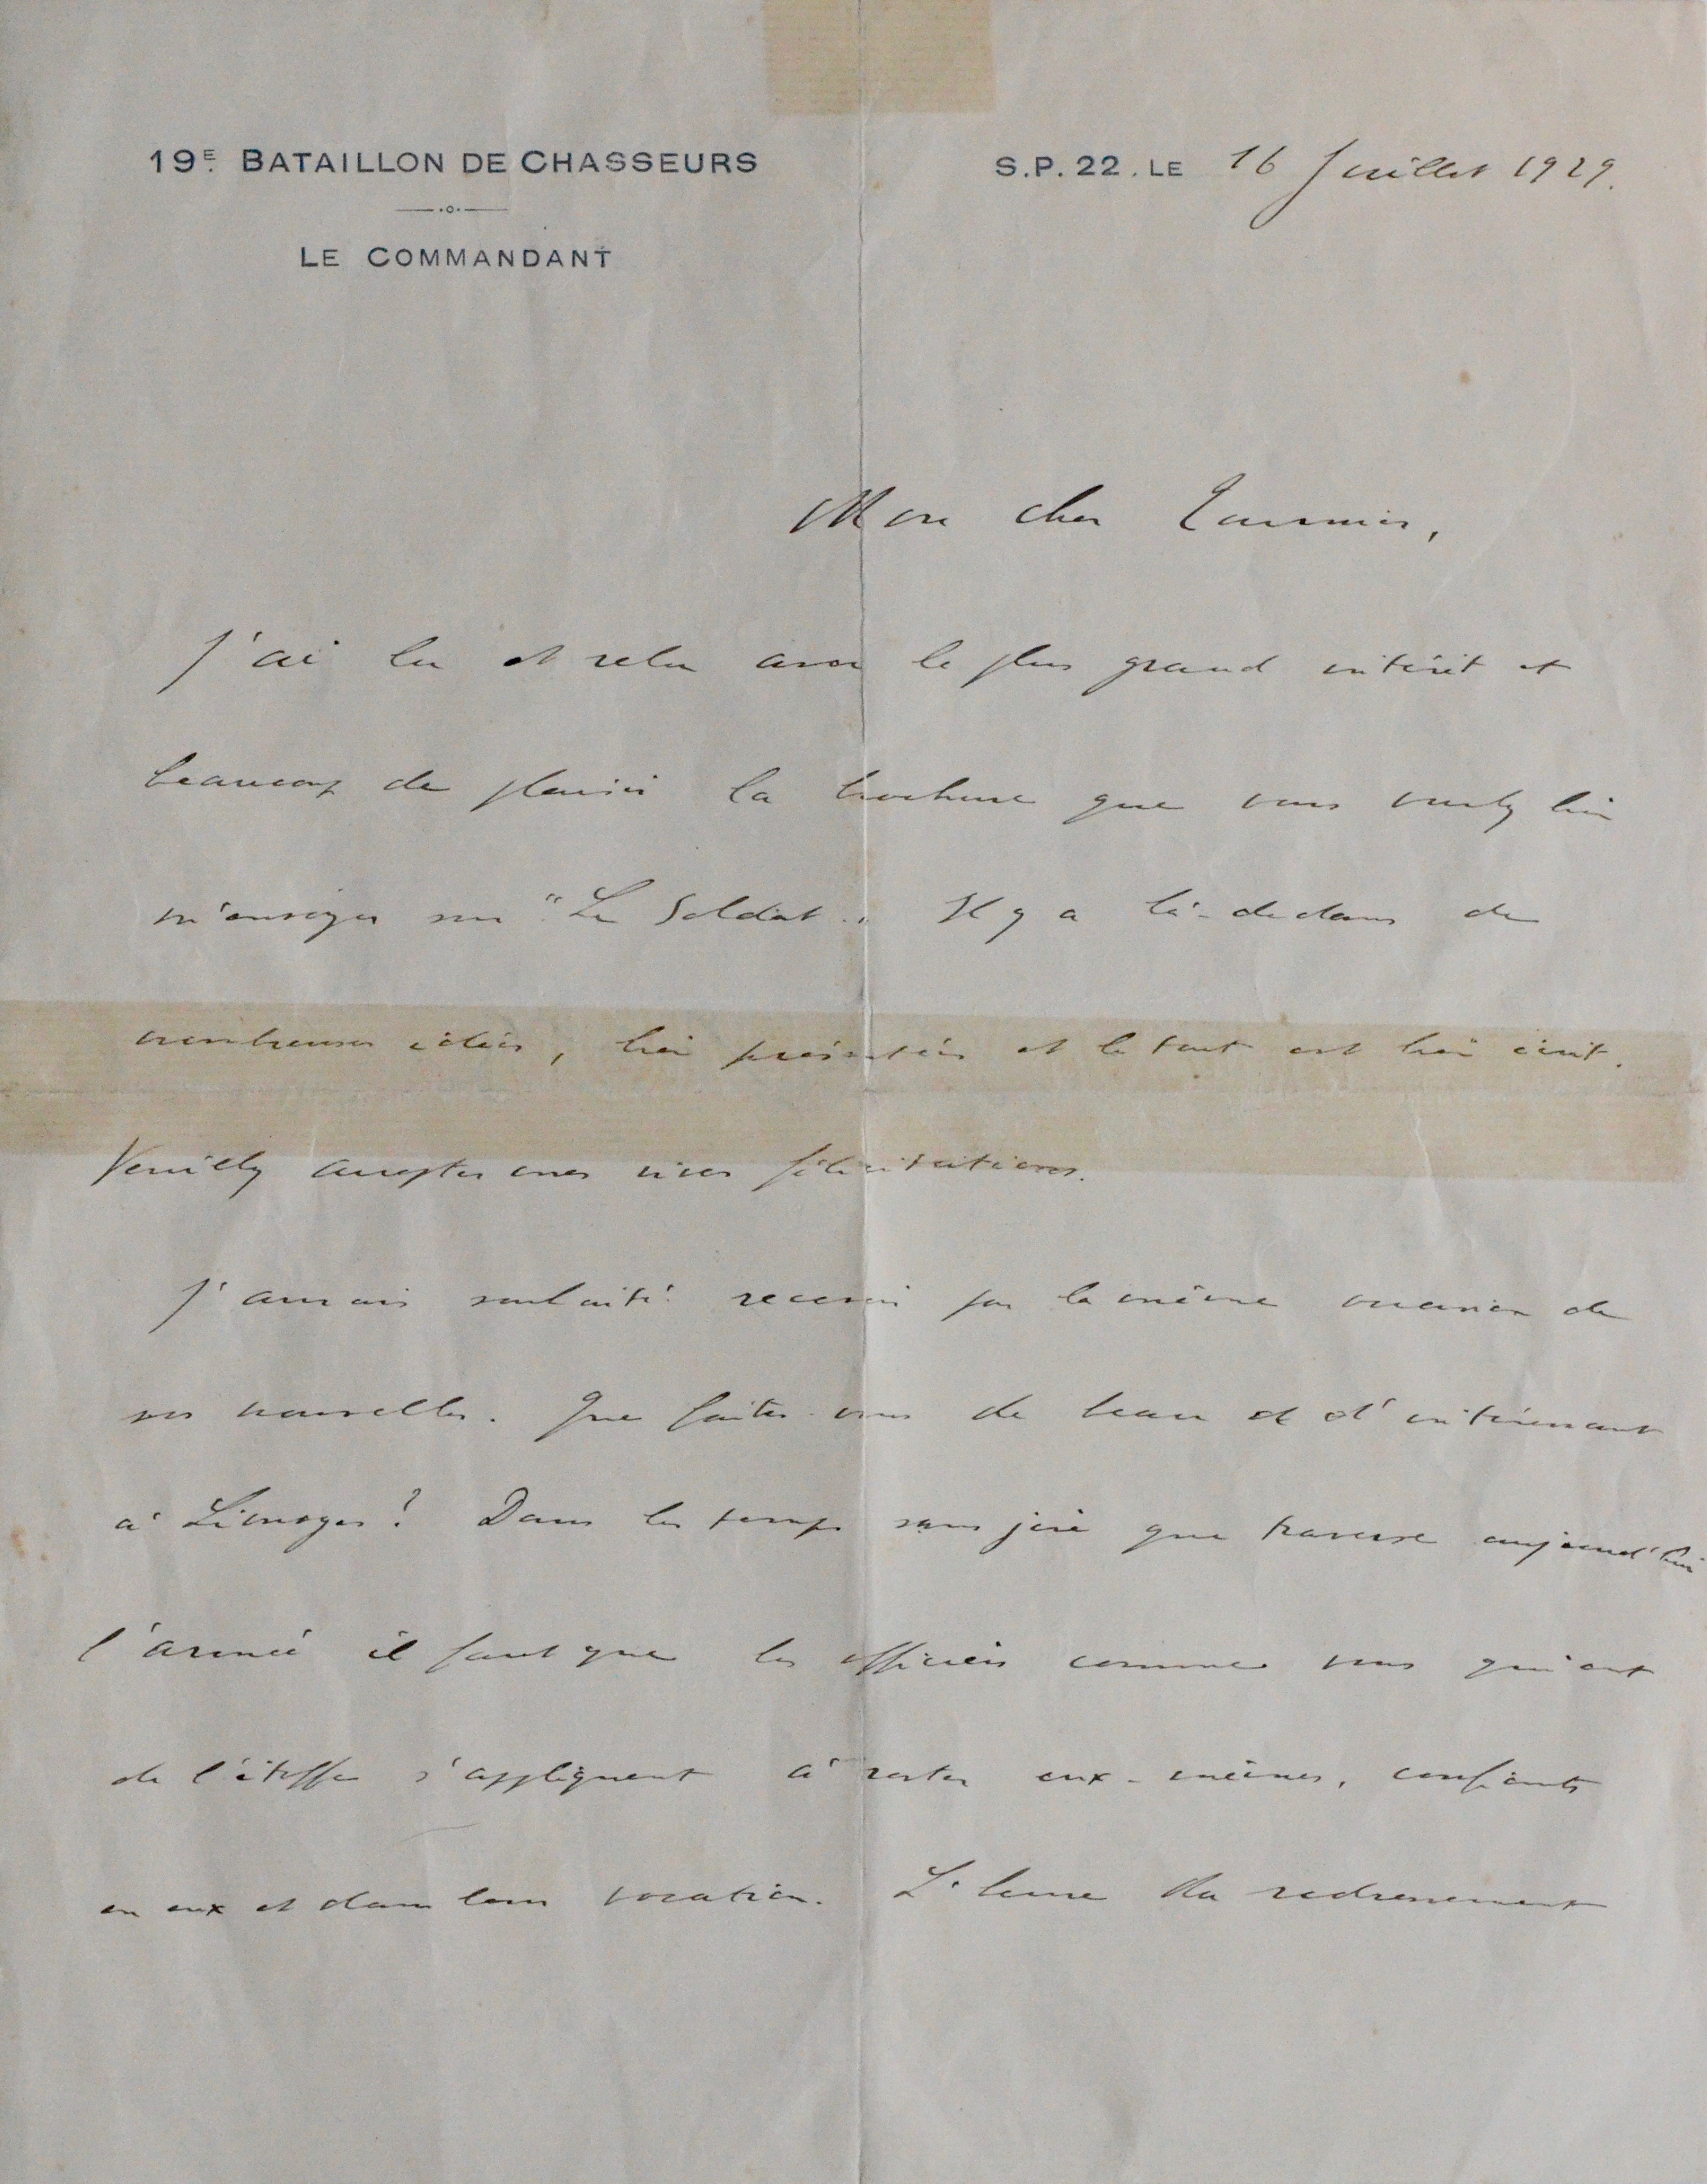 19E. BATAILLON DE CHASSEURS
LE COMMANDANT
S.P. 22. LE 16 Juillet 1929.
Mon cher
J'ai lu et relu avec le plus grand intérêt et
beaucoup de plaisir la brochure que vous voulez bien
m'envoyer sur "Le Soldat". Il y a là-dedans de
nombreuses idées, bien présentées et le tout est bien écrit.
Veuillez accepter mes vives félicitations.
J'aurais souhaité recevoir par la même occasion de
vos nouvelles. Que faites-vous de beau et d'intéressant
à Limoges ? Dans les temps sans joie que traverse aujourd'hui
l'armée il faut que les officiers comme vous qui ont
de l'étoffe s'appliquent à rester eux-mêmes, confiants
en eux et dans leur vocation. L'heure du redressement